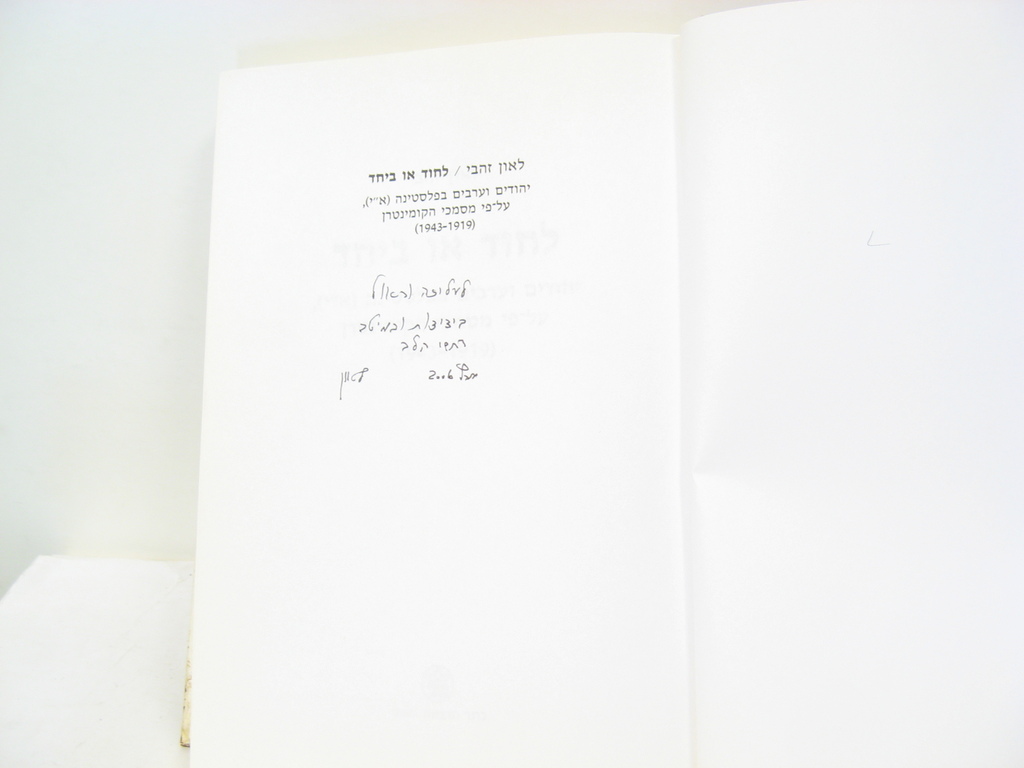 לאון זהבי / לחוד או ביחד
יהודים וערבים בפלסטינה (א״י),
על־פי מסמכי הקומינטרן
(1943-1919)
לעליזה וראול
בידידות ובמיטב
רחשי הלב
2006 לאון